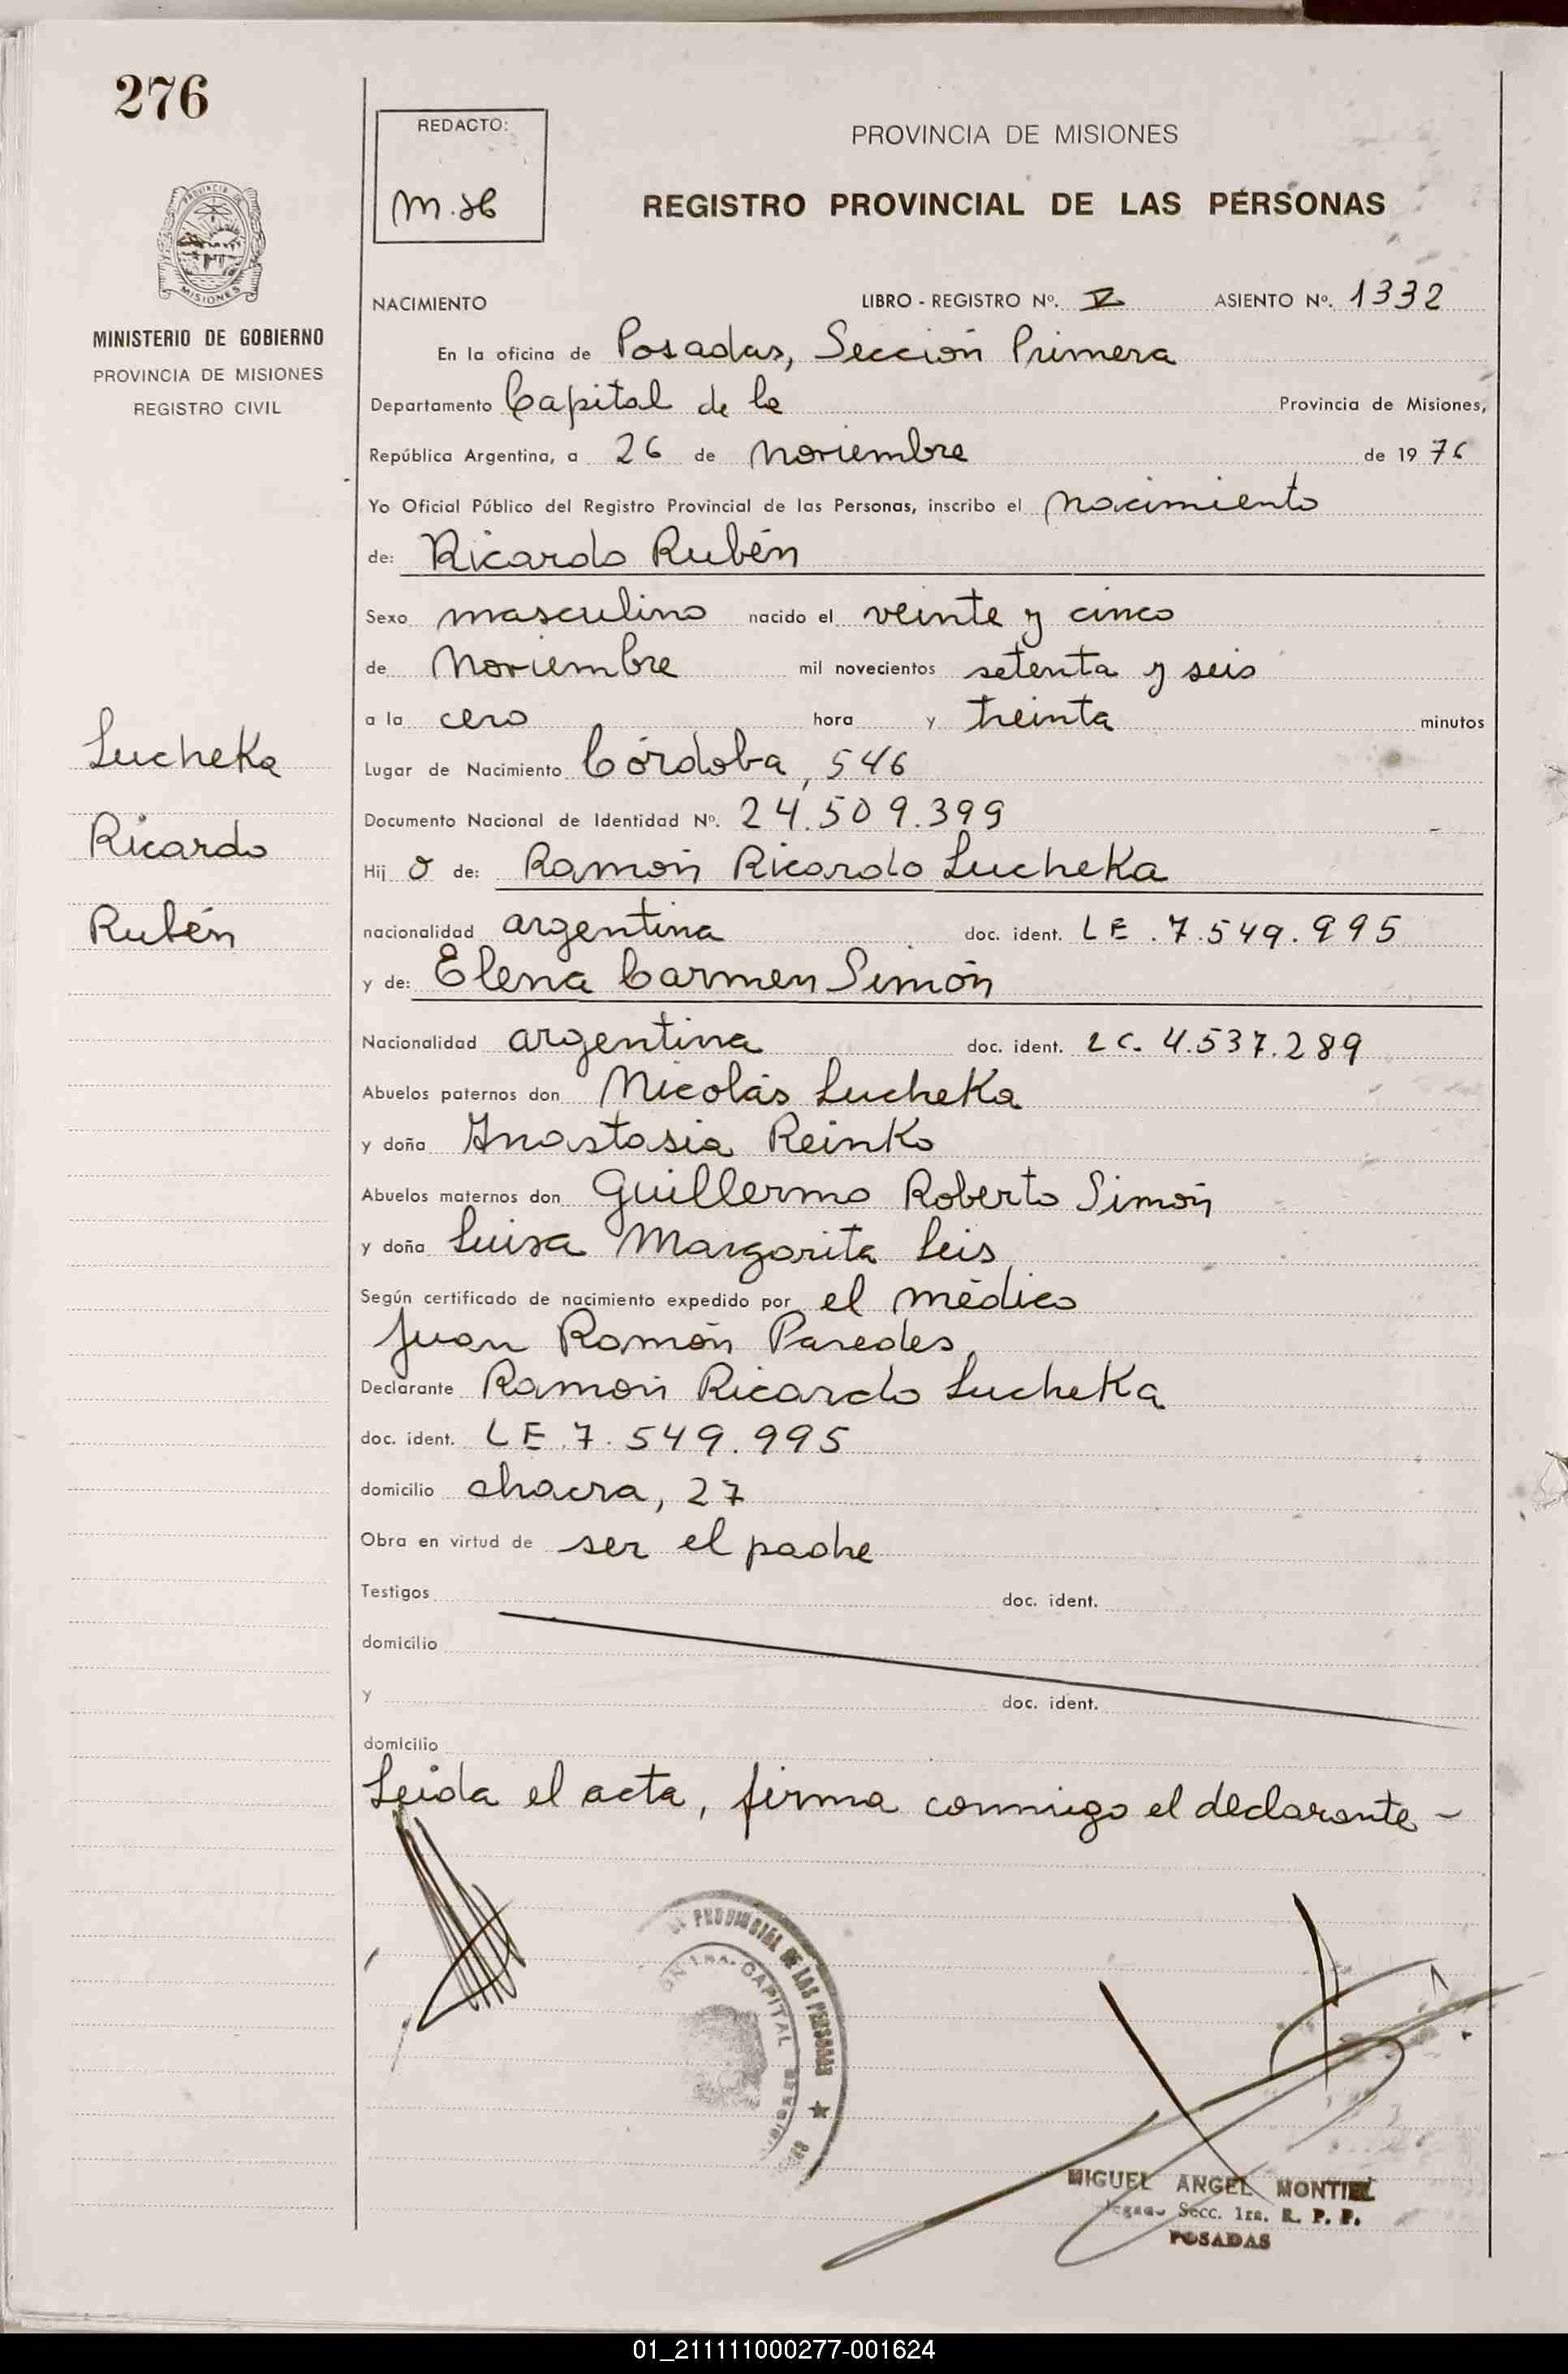 276
REDACTO:
M.H
PROVINCIA DE MISIONES
REGISTRO PROVINCIAL DE LAS PERSONAS
PROVINCIA
MISIONES
MINISTERIO DE GOBIERNO
PROVINCIA DE MISIONES
REGISTRO CIVIL
NACIMIENTO LIBRO - REGISTRO Nº. V ASIENTO Nº. 1332
En la oficina de Posadas, Sección Primera
Departamento Capital de la Provincia de Misiones,
República Argentina, a 26 de Noviembre de 1976
Yo Oficial Público del Registro Provincial de las Personas, inscribo el nacimiento
de: Ricardo Rubén
Sexo masculino nacido el veinte y cinco
de Noviembre mil novecientos setenta y seis
a la cero hora y treinta minutos
Lugar de Nacimiento Córdoba, 546
Documento Nacional de Identidad Nº. 24.509.399
Hijo de: Ramón Ricardo Lucheka
nacionalidad argentina doc. ident. LE.7.549.995
y de: Elena Carmen Simón
Nacionalidad argentina doc. ident. LC. 4.537.289
Abuelos paternos don Nicolás Lucheka
y doña Anastasia Reinko
Abuelos maternos don Guillermo Roberto Simón
y doña Luisa Margarita Leis
Según certificado de nacimiento expedido por el médico
Juan Ramón Paredes
Declarante Ramón Ricardo Lucheka
doc. ident. LE.7.549.995
domicilio chacra, 27
Obra en virtud de ser el padre
Testigos doc. ident.
domicilio
y doc. ident.
domicilio
Leida el acta, firma conmigo el declarante -
Lucheka
Ricardo
Rubén
PROVINCIAL DE LAS PERSONAS
CAPITAL
MIGUEL ANGEL MONTIEL
Secc. 1ra. R. P. P.
POSADAS
01_211111000277-001624